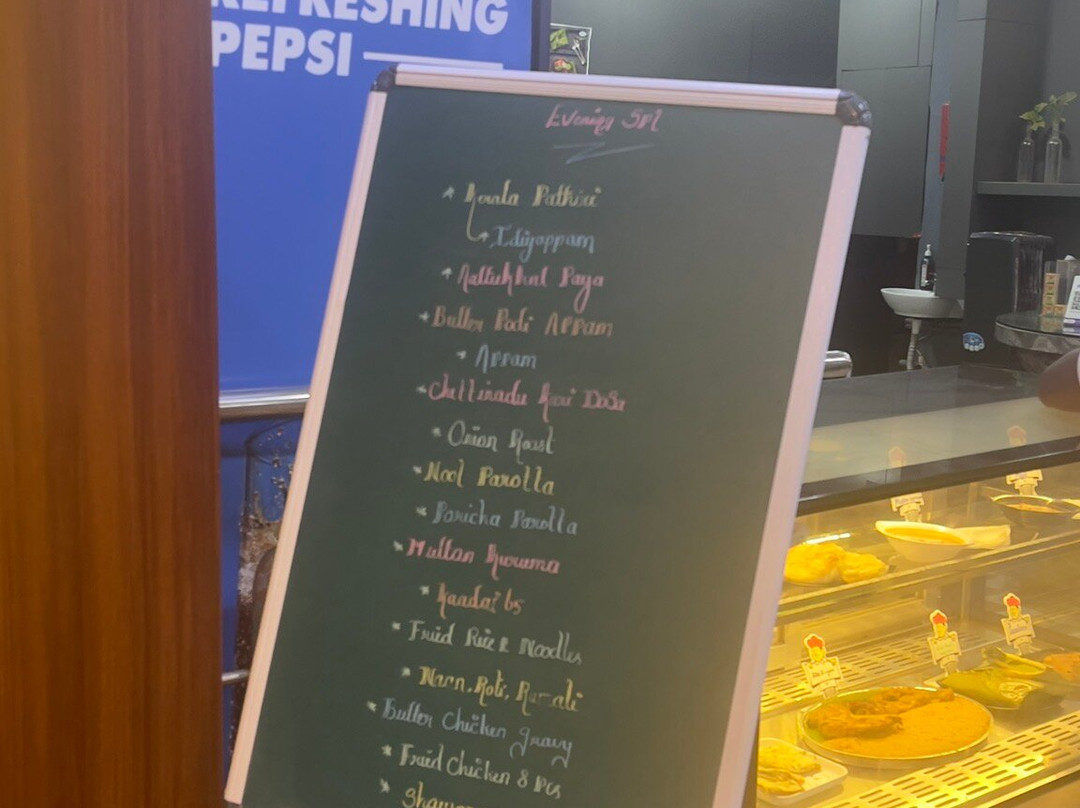 REFRESHING
PEPSI
Evening SPL
Kerala Pathiri
Idiyappam
Paya
Butter Podi APPam
APPam
Chettinadu Kari DoSa
Onion Roast
Nool Parotta
Poricha Parotta
Mutton Kuruma
Kaadai 65
Fried Rice & Noodles
Naan, Roti, Rumali
Butter Chicken gravy
Fried Chicken 8 Pcs